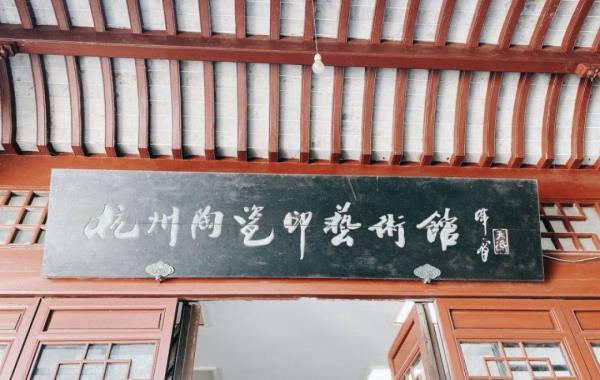 杭州陶瓷印藝術館